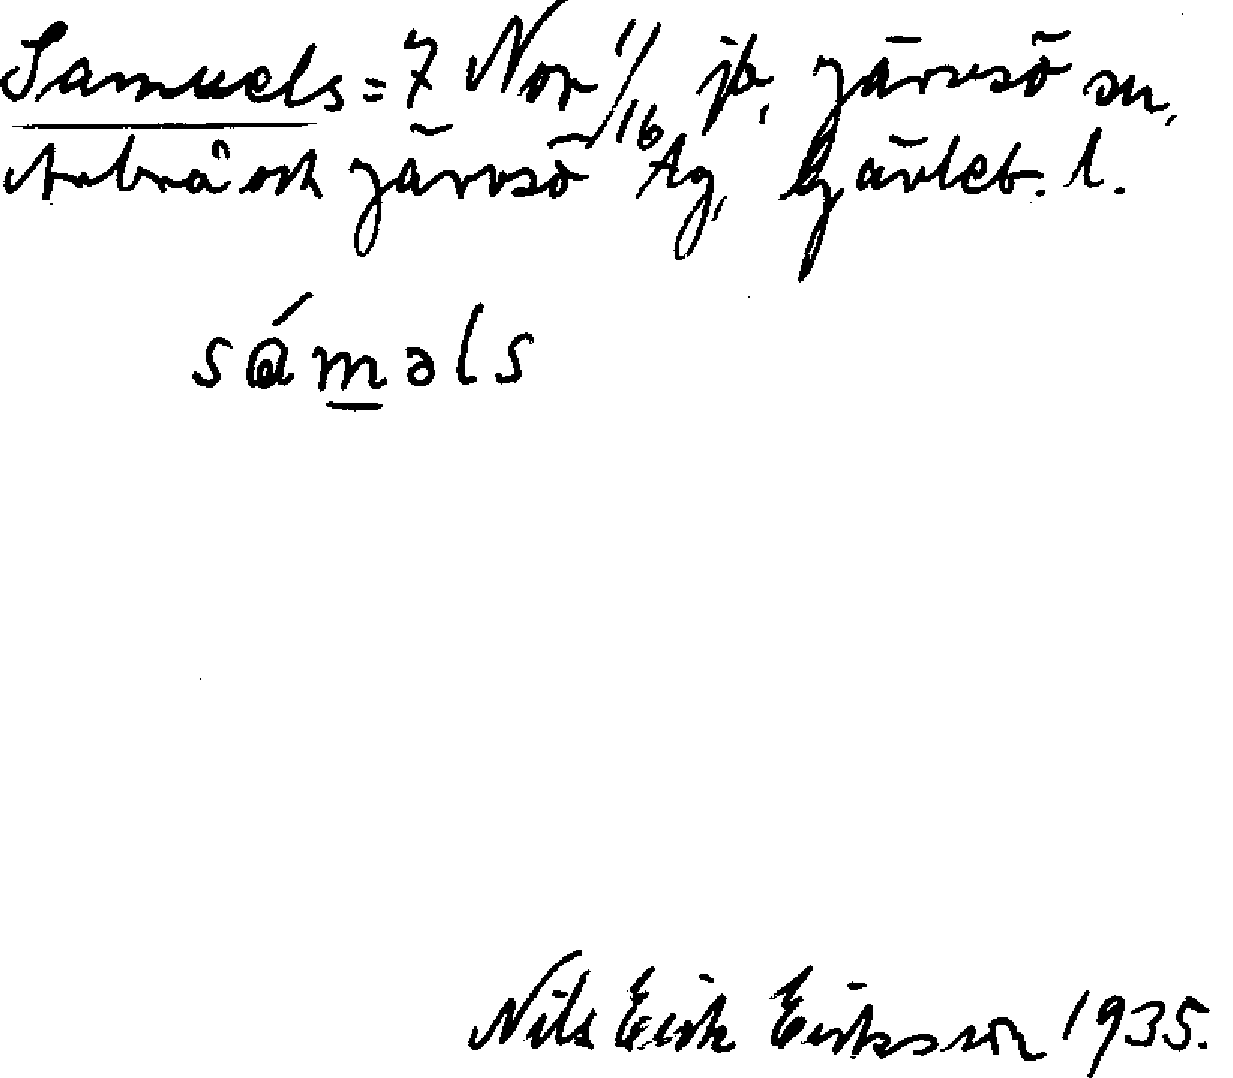 Samuels = 7 Nor 1/16 jb, Järvsö sn,
Arbrå och Järvsö tg, Gävleb. l.
sáməls
Nils Erik Eriksson 1935.